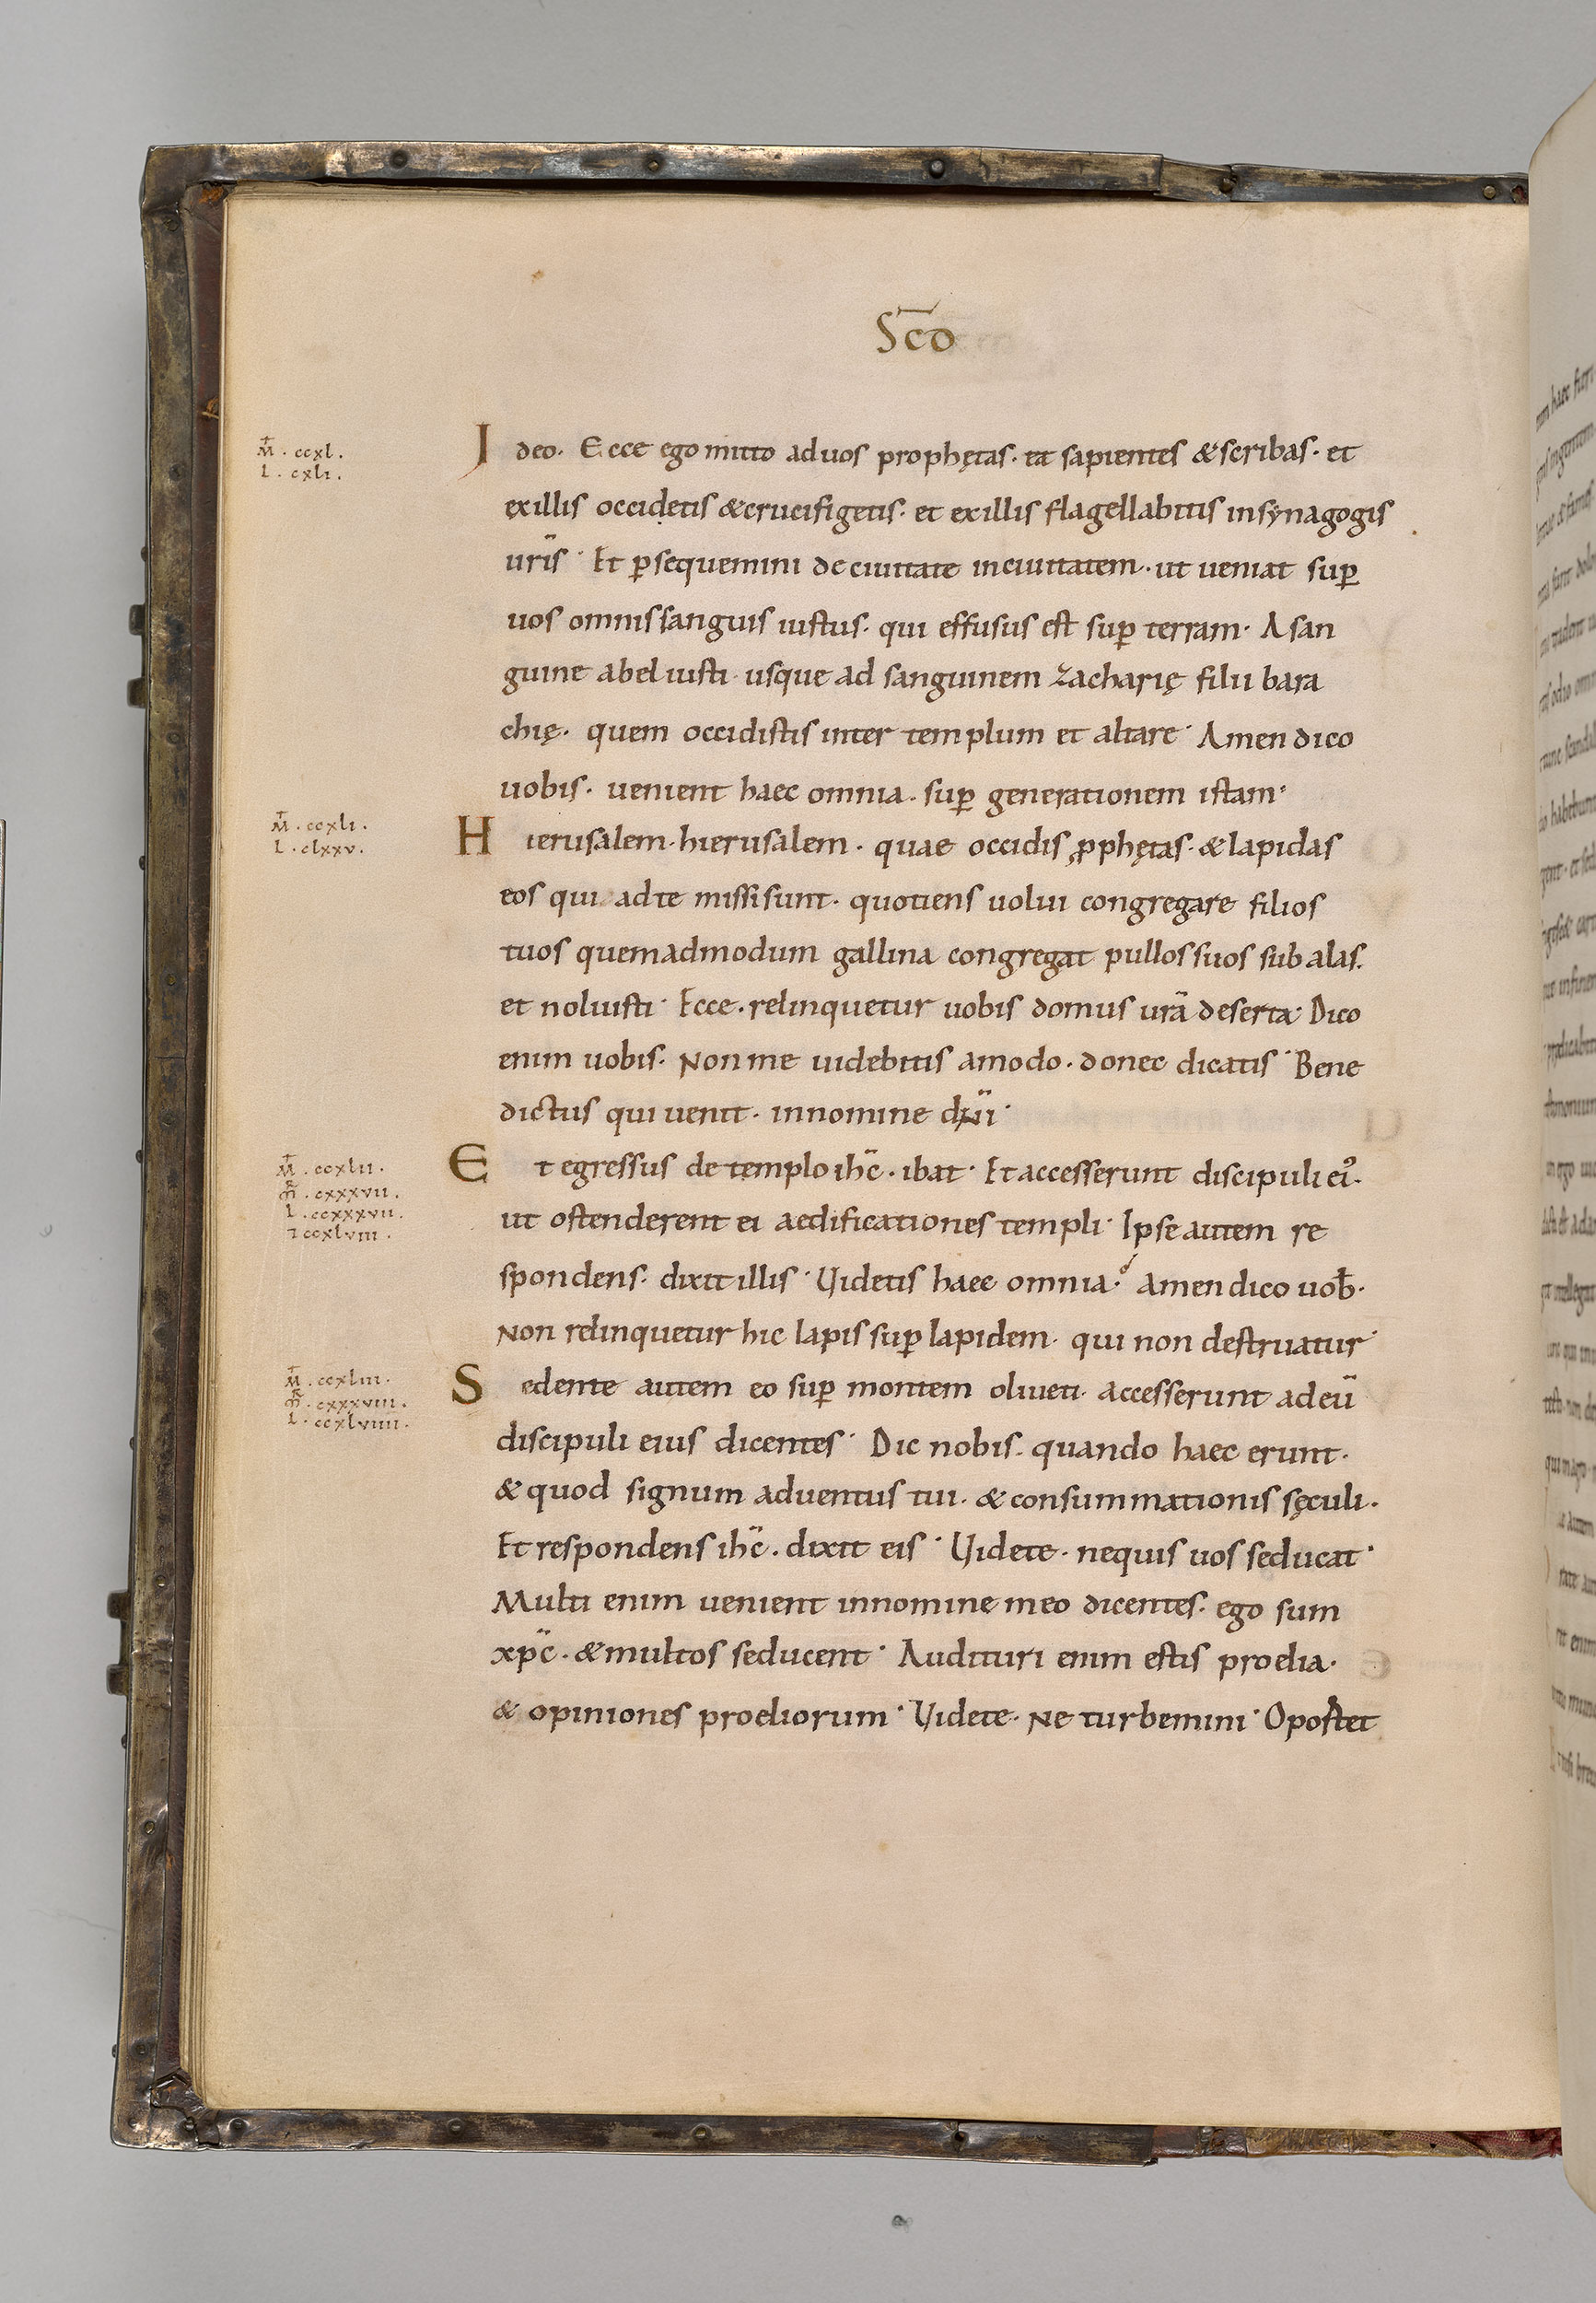 Sc̄o
M̄ . ccxl.
L . cxli.
Ideo. Ecce ego mitto ad uos prophętas. et sapientes & scribas. et
exillis occidetis & crucifigetis. et exillis flagellabitis in synagogis
ur̄is. Et ꝑsequemini de ciuitate in ciuitatem. ut ueniat suꝑ
uos omnis sanguis iustus. qui effusus est suꝑ terram. A san
guine abel iusti. usque ad sanguinem Zacharię filii bara
chię. quem occidistis inter templum et altare. Amen dico
uobis. uenient haec omnia. suꝑ generationem istam.
M̄ . ccxli.
L . clxxv.
Hierusalem. hierusalem. quae occidis ꝓphętas. & lapidas
eos qui ad te missi sunt. quotiens uolui congregare filios
tuos quemadmodum gallina congregat pullos suos sub alas.
et noluisti. Ecce. relinquetur uobis domus ur̄a deserta. Dico
enim uobis. Non me uidebitis amodo. donec dicatis. Bene
dictus qui uenit. in nomine dn̄i.
M̄ . ccxlii.
m̄ʀ . cxxxvii.
L . ccxxxvii.
⁊ ccxlviii.
Et egressus de templo ih̄c. ibat. Et accesserunt discipuli eiꝰ.
ut ostenderent ei aedificationes templi. Ipse autem re
spondens. dixit illis. Uidetis haec omnia? Amen dico uob̄.
Non relinquetur hic lapis suꝑ lapidem. qui non destruatur.
M̄ . ccxliii.
m̄ʀ . cxxxviii.
L . ccxlviiii.
Sedente autem eo suꝑ montem oliueti. accesserunt ad eū
discipuli eius dicentes. Dic nobis. quando haec erunt.
& quod signum aduentus tui. & consummationis sęculi.
Et respondens ih̄c. dixit eis. Uidete. nequis uos seducat.
Multi enim uenient in nomine meo dicentes. ego sum
xp̄c. & multos seducent. Audituri enim estis proelia.
& opiniones proeliorum. Uidete. Ne turbemini. Oportet